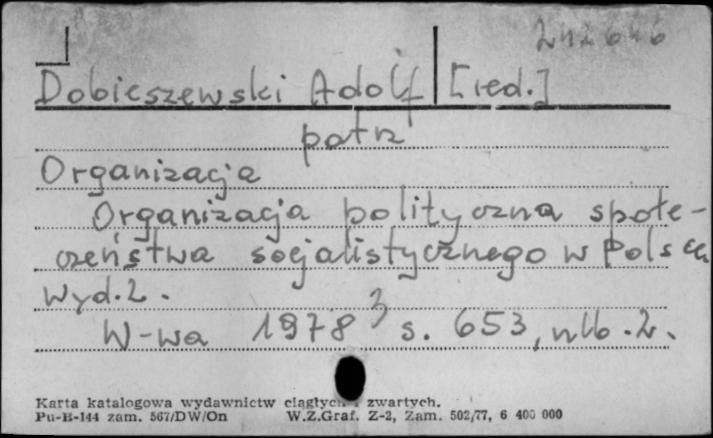 242646
Dobieszewski Adolf [red.]
patrz
Organizacja
Organizacja polityczna społe-
czeństwa socjalistycznego w Polsce
Wyd. 2.
W-wa 1978 3 s. 653, nlb. 2.
Karta katalogowa wydawnictw ciągłych i zwartych.
Pu-B-144 zam. 567/DW/On W.Z.Graf. Z-2, Zam. 502/77, 6 400 000